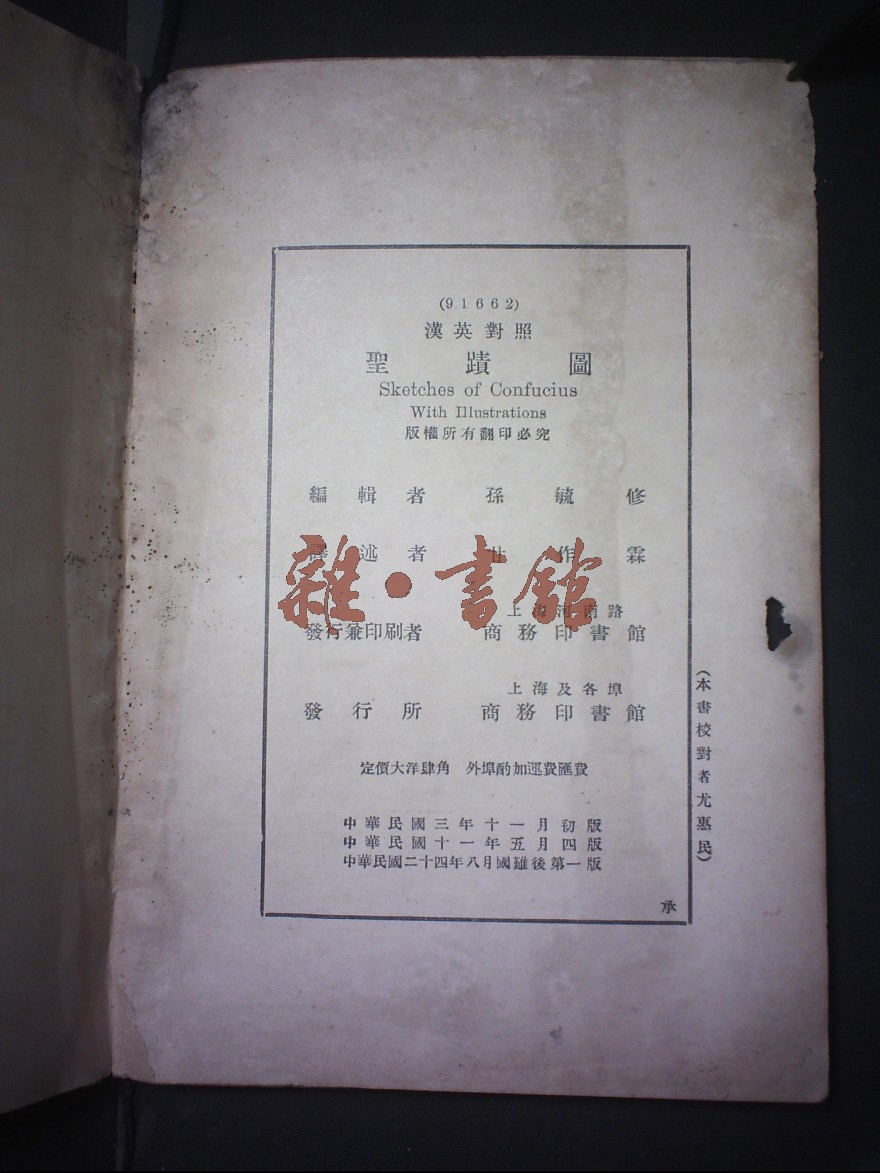 (91662)
漢英對照
聖蹟圖
Sketches of Confucius
With Illustrations
版權所有翻印必究
編輯者 孫毓修
譯述者 甘作霖
上海河南路
發行兼印刷者 商務印書館
上海及各埠
發行所 商務印書館
定價大洋肆角 外埠酌加運費匯費
中華民國三年十一月初版
中華民國十一年五月四版
中華民國二十四年八月國難後第一版
承
(本書校對者尤惠民)
雜·書館